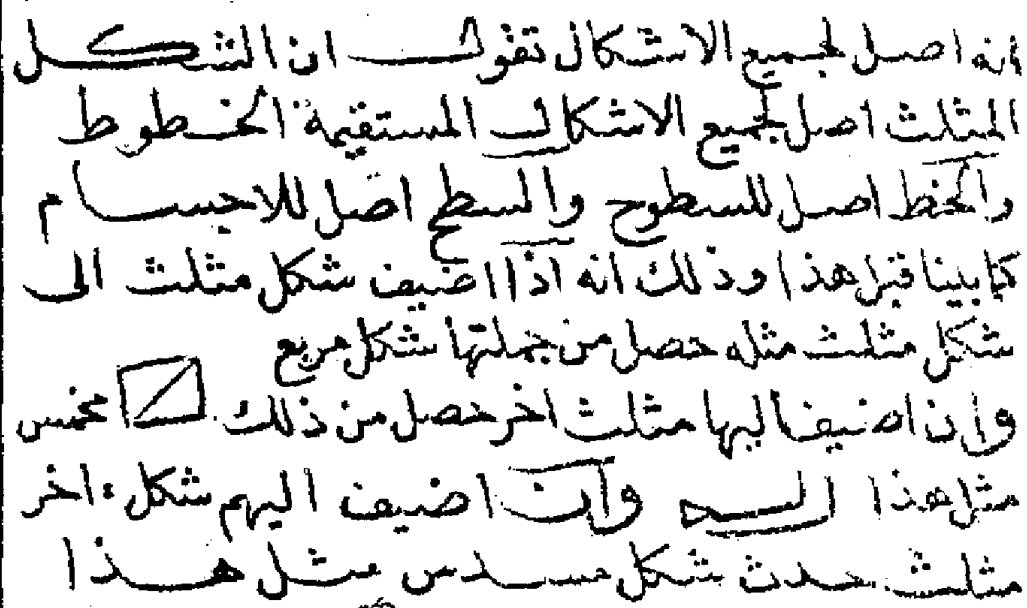 انه اصل لجميع الاشكال تقول ان الشكل
المثلث اصل لجميع الاشكال المستقيمة الخطوط
والخط اصل للسطوح والسطح اصل للاجسام
كما بينا قبل هذا وذلك انه اذا اضيف شكل مثلث الى
شكل مثلث مثله حصل من جملتها شكل مربع
وان اضيف اليها مثلث اخر حصل من ذلك مخمس
مثل هذا وان اضيف اليهم شكل اخر
مثلث حدث شكل مسدس مثل هذا